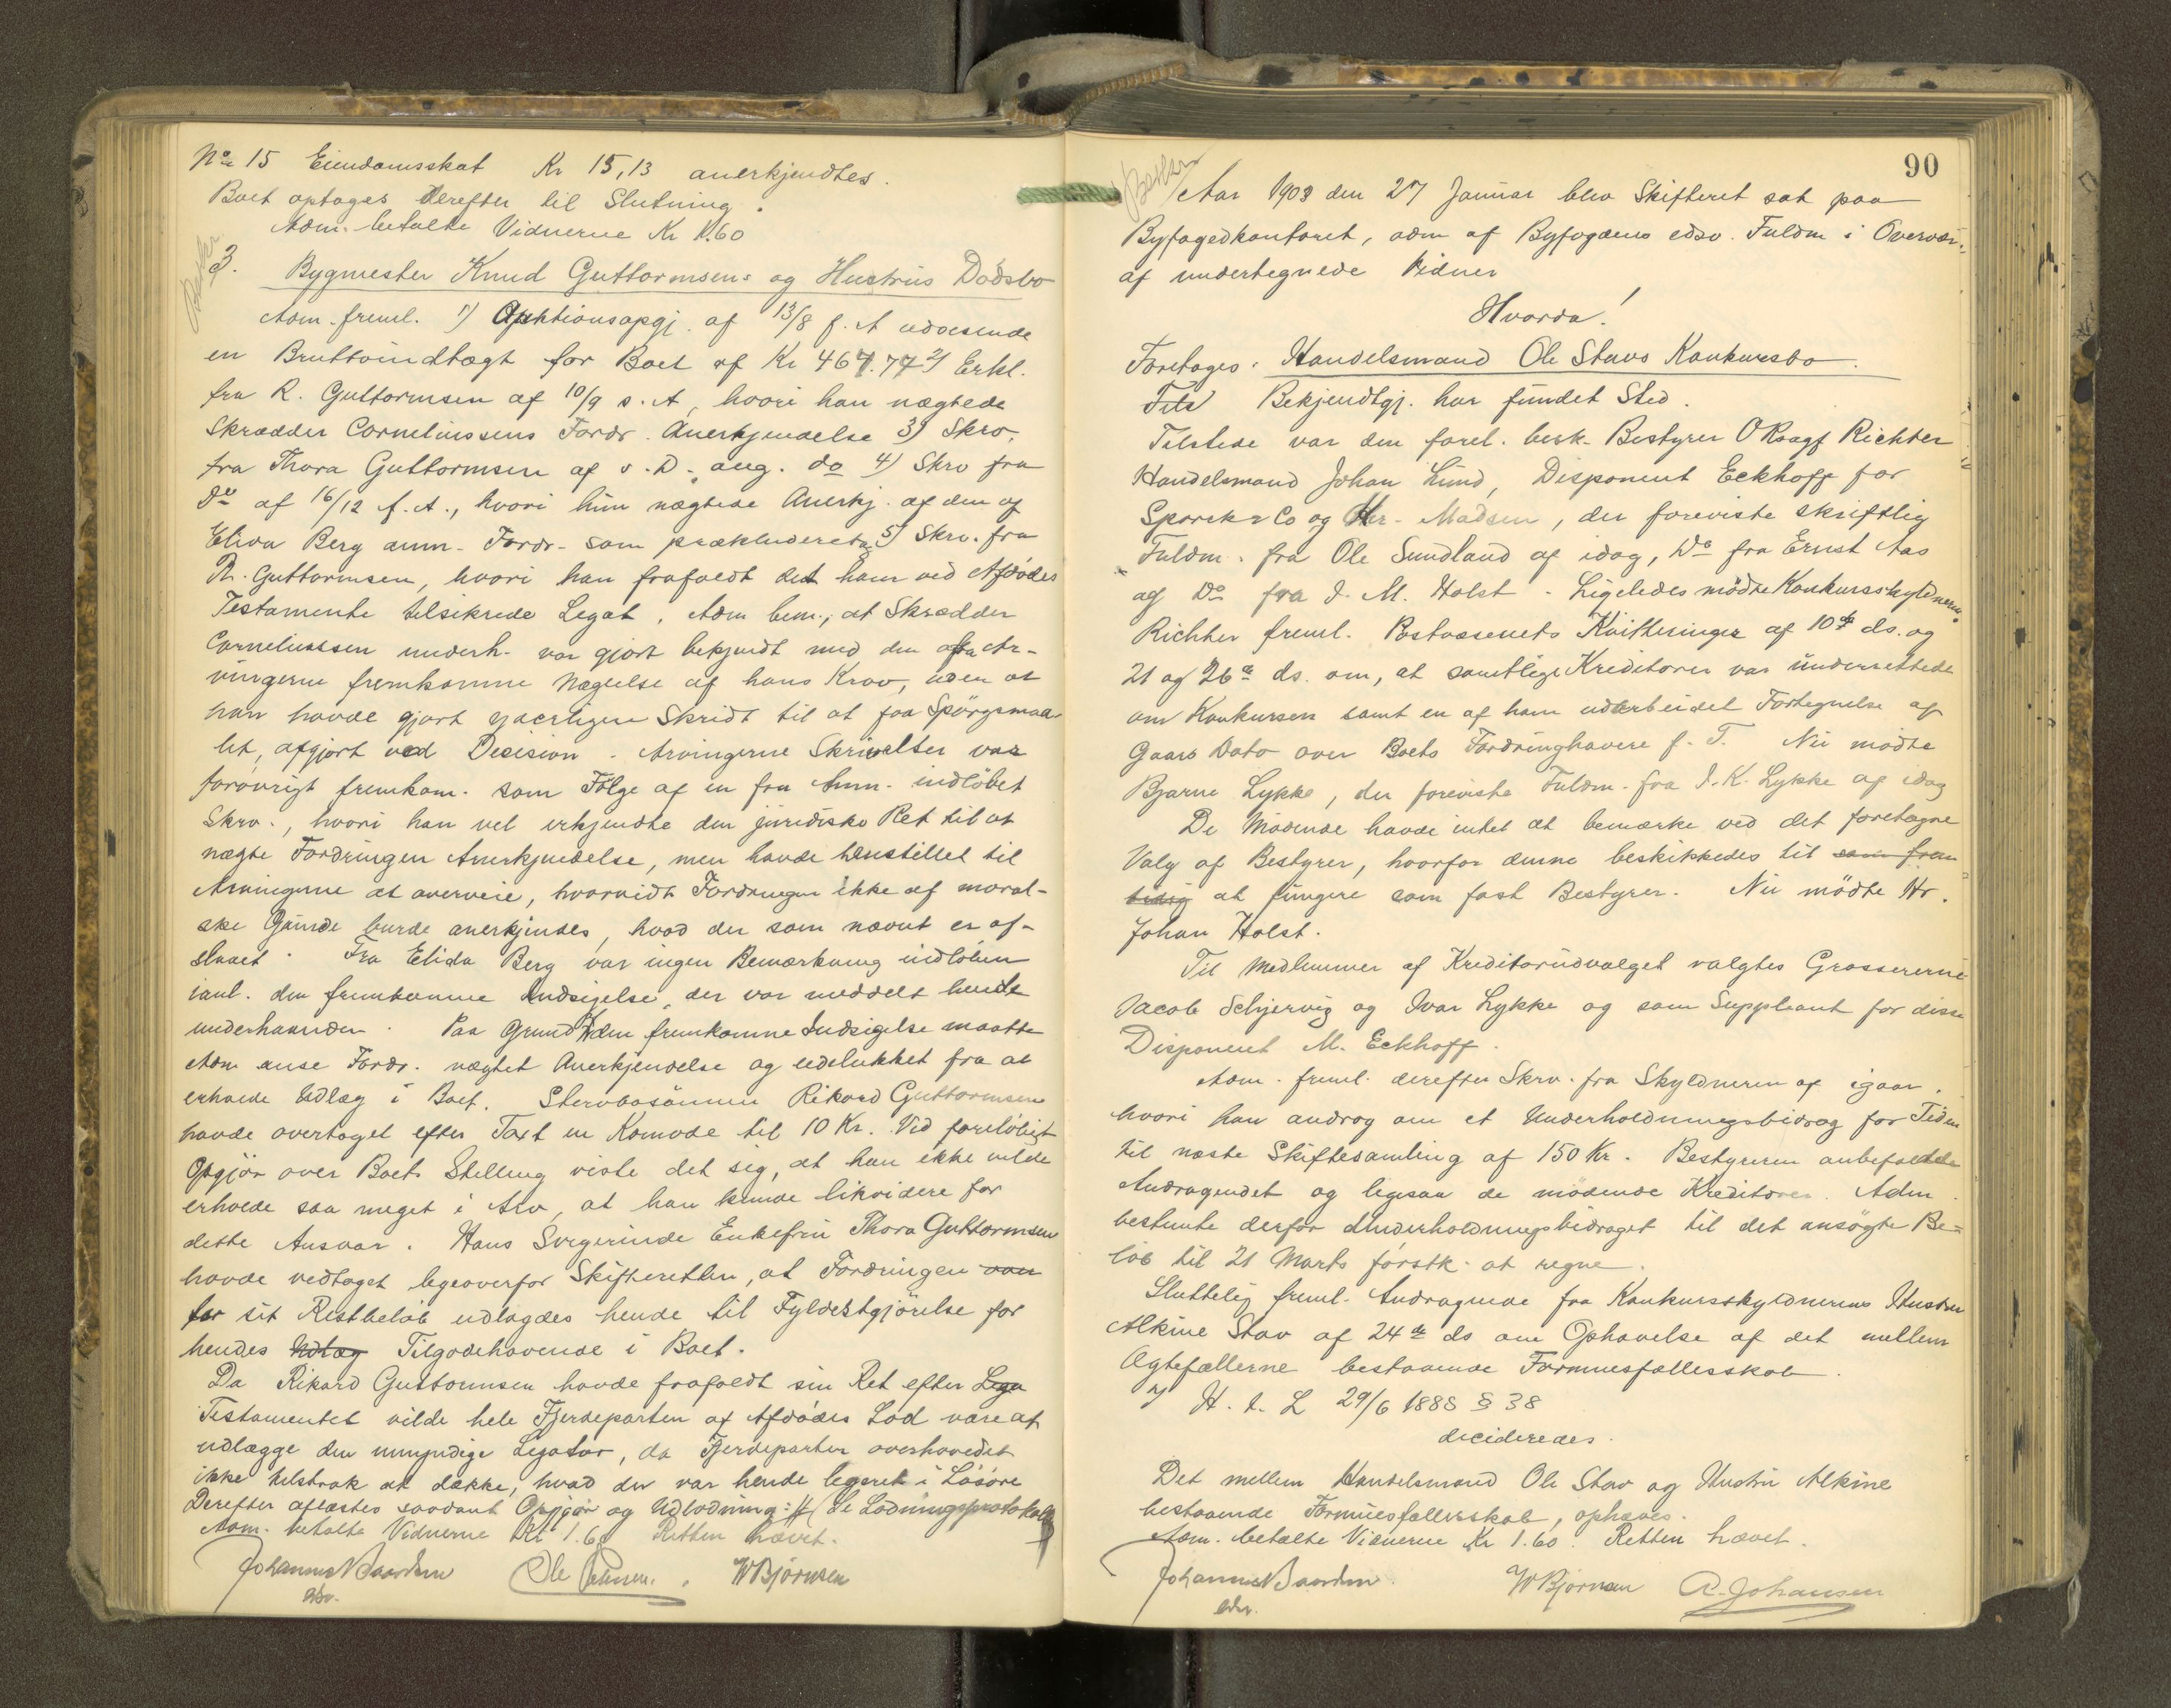 No 15 Eiendomsskat Kr 15,13 anerkjendtes.
Boet optoges derefter til Slutning.
Adm. betalte Vidnerne Kr 1.60
3. Bygmester Knud Guttormsens og Hustrus Dödsbo
Adm. freml. 1) Auktionsopgj. af 13/8 f. A udvisende
en Bruttoindtægt for Boet af Kr 467.77 2) Erkl.
fra R. Guttormsen af 10/9 s. A, hvori han nægtede
Skrædder Corneliussens Fordr. Anerkjendelse 3) Skrv.
fra Thora Guttormsen af s. D. ang. do 4) Skrv fra
Do af 16/12 f. A., hvori hun nægtede Anerkj. af den af
Elida Berg anm. Fordr. som prækluderet 5) Skrv. fra
R. Guttormsen, hvori han frafaldt det ham ved Afdödes
Testamente tilsikrede Legat. Adm bem., at Skrædder
Corneliussen underh. var gjort bekjendt med den fra Ar-
vingerne fremkomne Nægtelse af hans Krav, uden at
han havde gjort yderligere Skridt til at faa Spörgsmaa-
let afgjort ved Decision. Arvingerne Skrivelser var
forövrigt fremkom. som Fölge af en fra Anm. indlöbet
Skrv., hvori han vel erkjendte den juridiske Ret til at
nægte Fordringen Anerkjendelse, men havde henstillet til
Arvingerne at overveie, hvorvidt Fordringen ikke af moral-
ske Grunde burde anerkjendes, hvad der som nævnt er af-
slaaet. Fra Elida Berg var ingen Bemærkning indlöben
vanl. den fremkomne Indsigelse, der var meddelt hende
underhaanden. Paa Grund af den fremkomne Indsigelse maatte
Adm anse Fordr. nægtet Anerkjendelse og udelukket fra at
erholde Udlæg i Boet. Stervbosönnen Rikard Guttormsen
havde overtaget efter Taxt en Komode til 10 Kr. Ved foreløbigt
Opgjör over Boets Stilling viste det sig, at han ikke vilde
erholde saa meget i Arv, at han kunde likvidere for
dette Ansvar. Hans Svigerinde Enkefru Thora Guttormsen
havde vedtaget ligeoverfor Skifteretten, at Fordringen
for sit Restbelöb udlagdes hende til Fyldestgjörelse for
hendes Udlæg Tilgodehavende i Boet.
Da Rikard Guttormsen havde frafaldt sin Ret efter Lega
Testamentet vilde hele Fjerdeparten af Afdödes Lod være at
udlægge den umyndige Legatar, da Fjerdeparten overhovedet
ikke tilstrak at dække, hvad der var hende legeret i Lösöre
Derefter aflæstes saadant Opgjör og Udlodning: (Se Lodningsprotokol
Adm. betalte Vidnerne Kr 1.60 Retten hævet.
Johannes Baardsen Ole W Björnsen
edsv.
90
Aar 1903 den 27 Januar blev Skifteret sat paa
Byfogedkontoret, adm af Byfogdens edsv. Fuldm i Overvær
af undertegnede Vidner
Hvorda!
Foretoges: Handelsmand Ole Stavs Konkursbo.
Bekjendtgj. har fundet Sted.
Tilstede var den forel. besk. Bestyrer ORsagf Richter
Handelsmand Johan Lund, Disponent Eckhoff for
Spörck & Co og Hr. Madsen, der foreviste skriftlig
Fuldm. fra Ole Sundland af idag, Do fra Ernst Aas
og Do fra J. M. Holst. Ligeledes mödte Konkursskyldneren.
Richter freml. Postvæsenets Kvitteringer af 10de ds. og
21 og 26de ds. om, at samtlige Kreditorer var underrettede
om Konkursen samt en af ham udarbeidet Fortegnelse af
Gaars Dato over Boets Fordringhavere f. T. Nu mödte
Bjarne Lykke, der foreviste Fuldm. fra J. K. Lykke af idag
De Mödende havde intet at bemærke ved det foretagne
Valg af Bestyrer, hvorfor denne beskikkedes til som frem
tidig at fungere som fast Bestyrer. Nu mödte Hr.
Johan Holst.
Til Medlemmer af Kreditorudvalget valgtes Grossererne
Jacob Schjerwig og Ivar Lykke og som Suppleant for disse
Disponent M. Eckhoff.
Adm. freml. derefter Skrv. fra Skyldneren af igaar,
hvori han androg om et Underholdningsbidrag for Tiden
til næste Skiftesamling af 150 Kr. Bestyreren anbefalede
Andragendet og ligesaa de mödende Kreditorer. Adm.
bestemte derfor Underholdningsbidraget til det ansögte Be-
löb til 21 Marts förstk. at regne.
Sluttelig freml. Andragende fra Konkursskyldnerens Hustru
Alkine Stav af 24de ds om Ophævelse af det mellem
Ægtefællerne bestaaende Formuesfællesskab.
H. t. L 29/6 1888 § 38
decideredes.
Det mellem Handelsmand Ole Stav og Hustru Alkine
bestaaende Formuesfællesskab, ophæves.
Adm. betalte Vidnerne Kr 1.60. Retten hævet.
Johannes Baardsen W Björnsen A. Johansen
edsv.